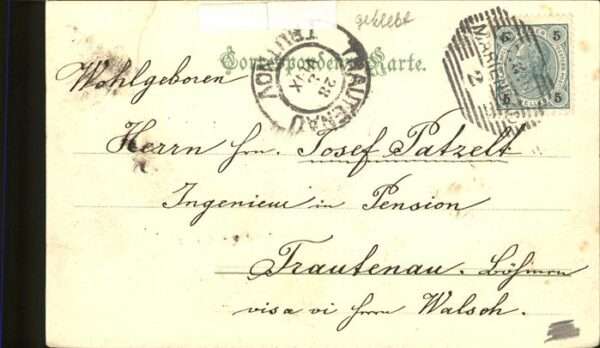 geklebt
Correspondenz-Karte.
TRAUTENAU
TRUTNOV
28
IX
MARIEN
2
5 5
5 5
Wohlgeboren
Herrn Hrn. Josef Patzelt
Ingenieur in Pension
Trautenau. Böhmen
visa vi Herrn Walsch.